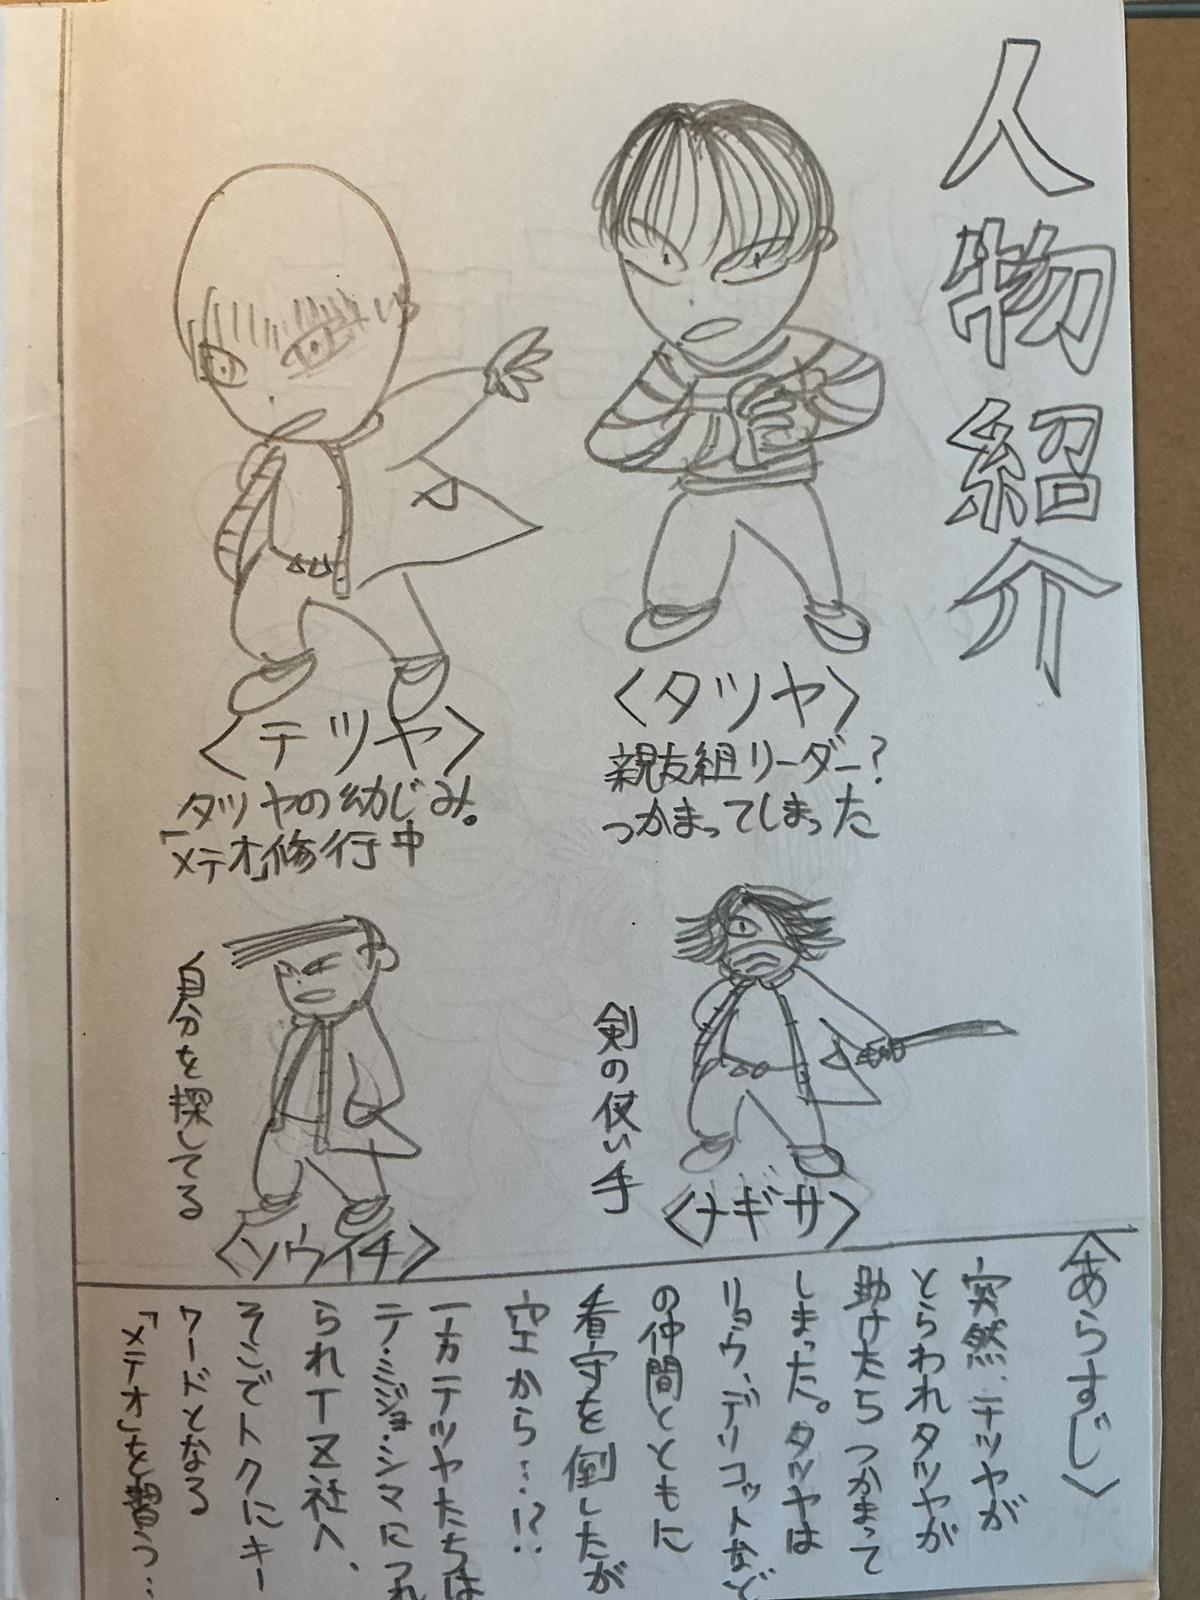 人物紹介
〈タツヤ〉
親友組リーダー?
つかまってしまった
〈テツヤ〉
タツヤの幼じみ。
「メテオ」修行中
剣の使い手
〈ナギサ〉
自分を探してる
〈ソウイチ〉
〈あらすじ〉
突然、テツヤが
とらわれタツヤが
助けたら つかまって
しまった。タツヤは
リョウ、デリコットなど
の仲間とともに
看守を倒したが
空から…!?
一方テツヤたちは
テ・ミジョ・シマにつれ
られT区社へ、
そこでトクにキー
ワードとなる
「メテオ」を習う…